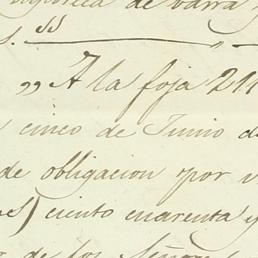 de barra
A la foja 21
cinco de Junio de
de obligacion por
ciento cuarenta y
de los Señores